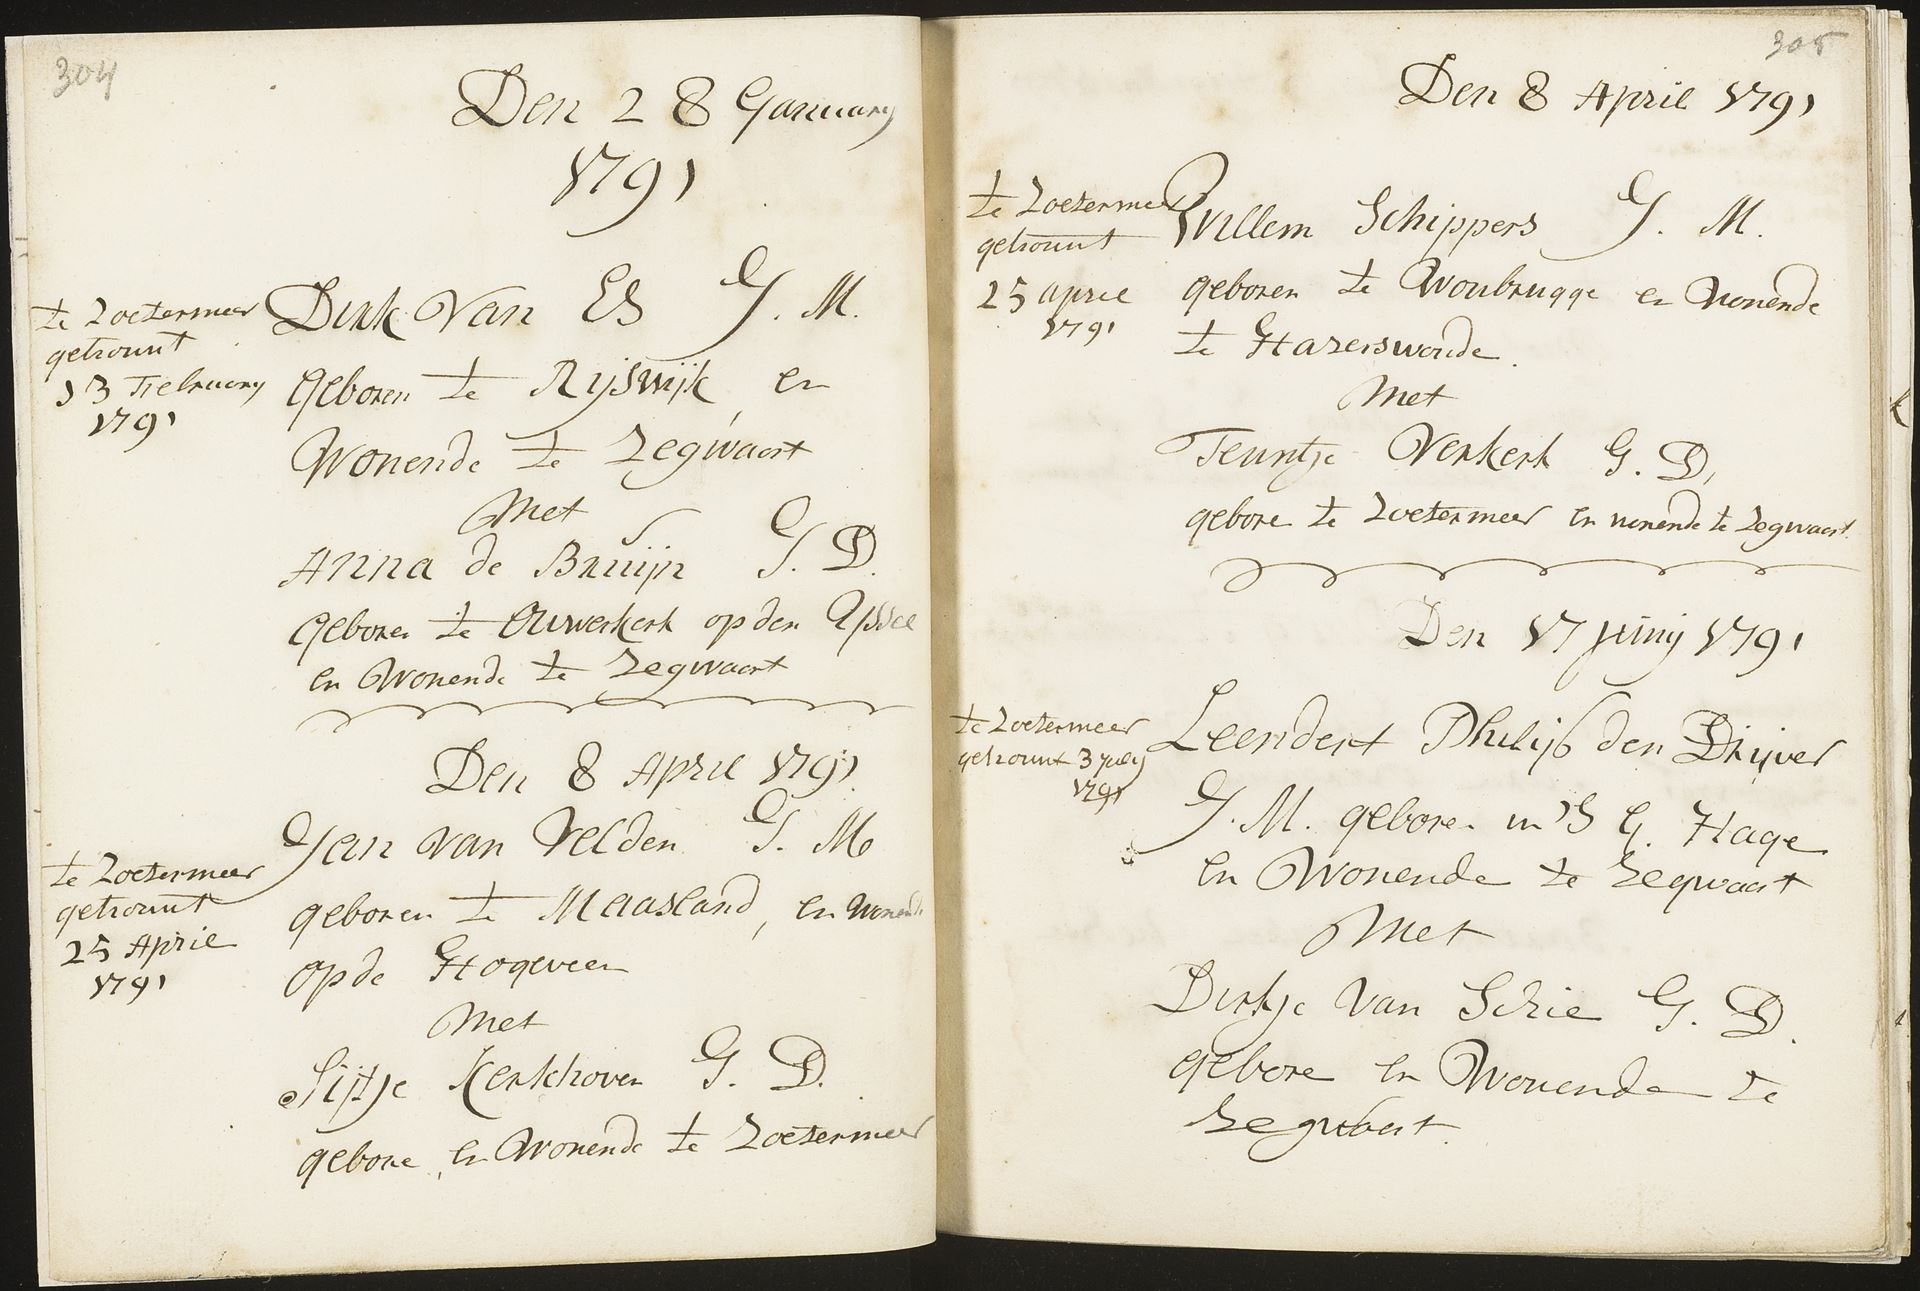 304
Den 28 January
1791
te Zoetermeer
getrouwt
13 February
1791
Dirk Van Es J. M.
Geboren te Rijswijk, en
Wonende te Zegwaart
Met
Anna de Bruijn J. D.
Geboren te Ouwerkerk op den Yssel
en Wonende te Zegwaart
Den 8 April 1791
te Zoetermeer
getrouwt
25 April
1791
Jan van Velden J. M.
geboren te Maasland, en wonende
op de Hogeveen
Met
Sijtje Kerkhoven J. D.
gebore, en Wonende te Zoetermeer
305
Den 8 April 1791
te Zoetermeer
getrouwt
25 april
1791
Willem Schippers J. M.
geboren te Woubrugge en Wonende
te Hazerswoude.
Met
Teuntje Verkerk J. D.
gebore te Zoetermeer en wonende te Zegwaart.
Den 17 juny 1791
te Zoetermeer
getrouwt 3 july
1791
Leendert Philip den Drijver
J. M. geboren in 'S G. Hage
en Wonende te Zegwaart
Met
Dirkje Van Schie J. D.
gebore en Wonende te
Zegwaart.